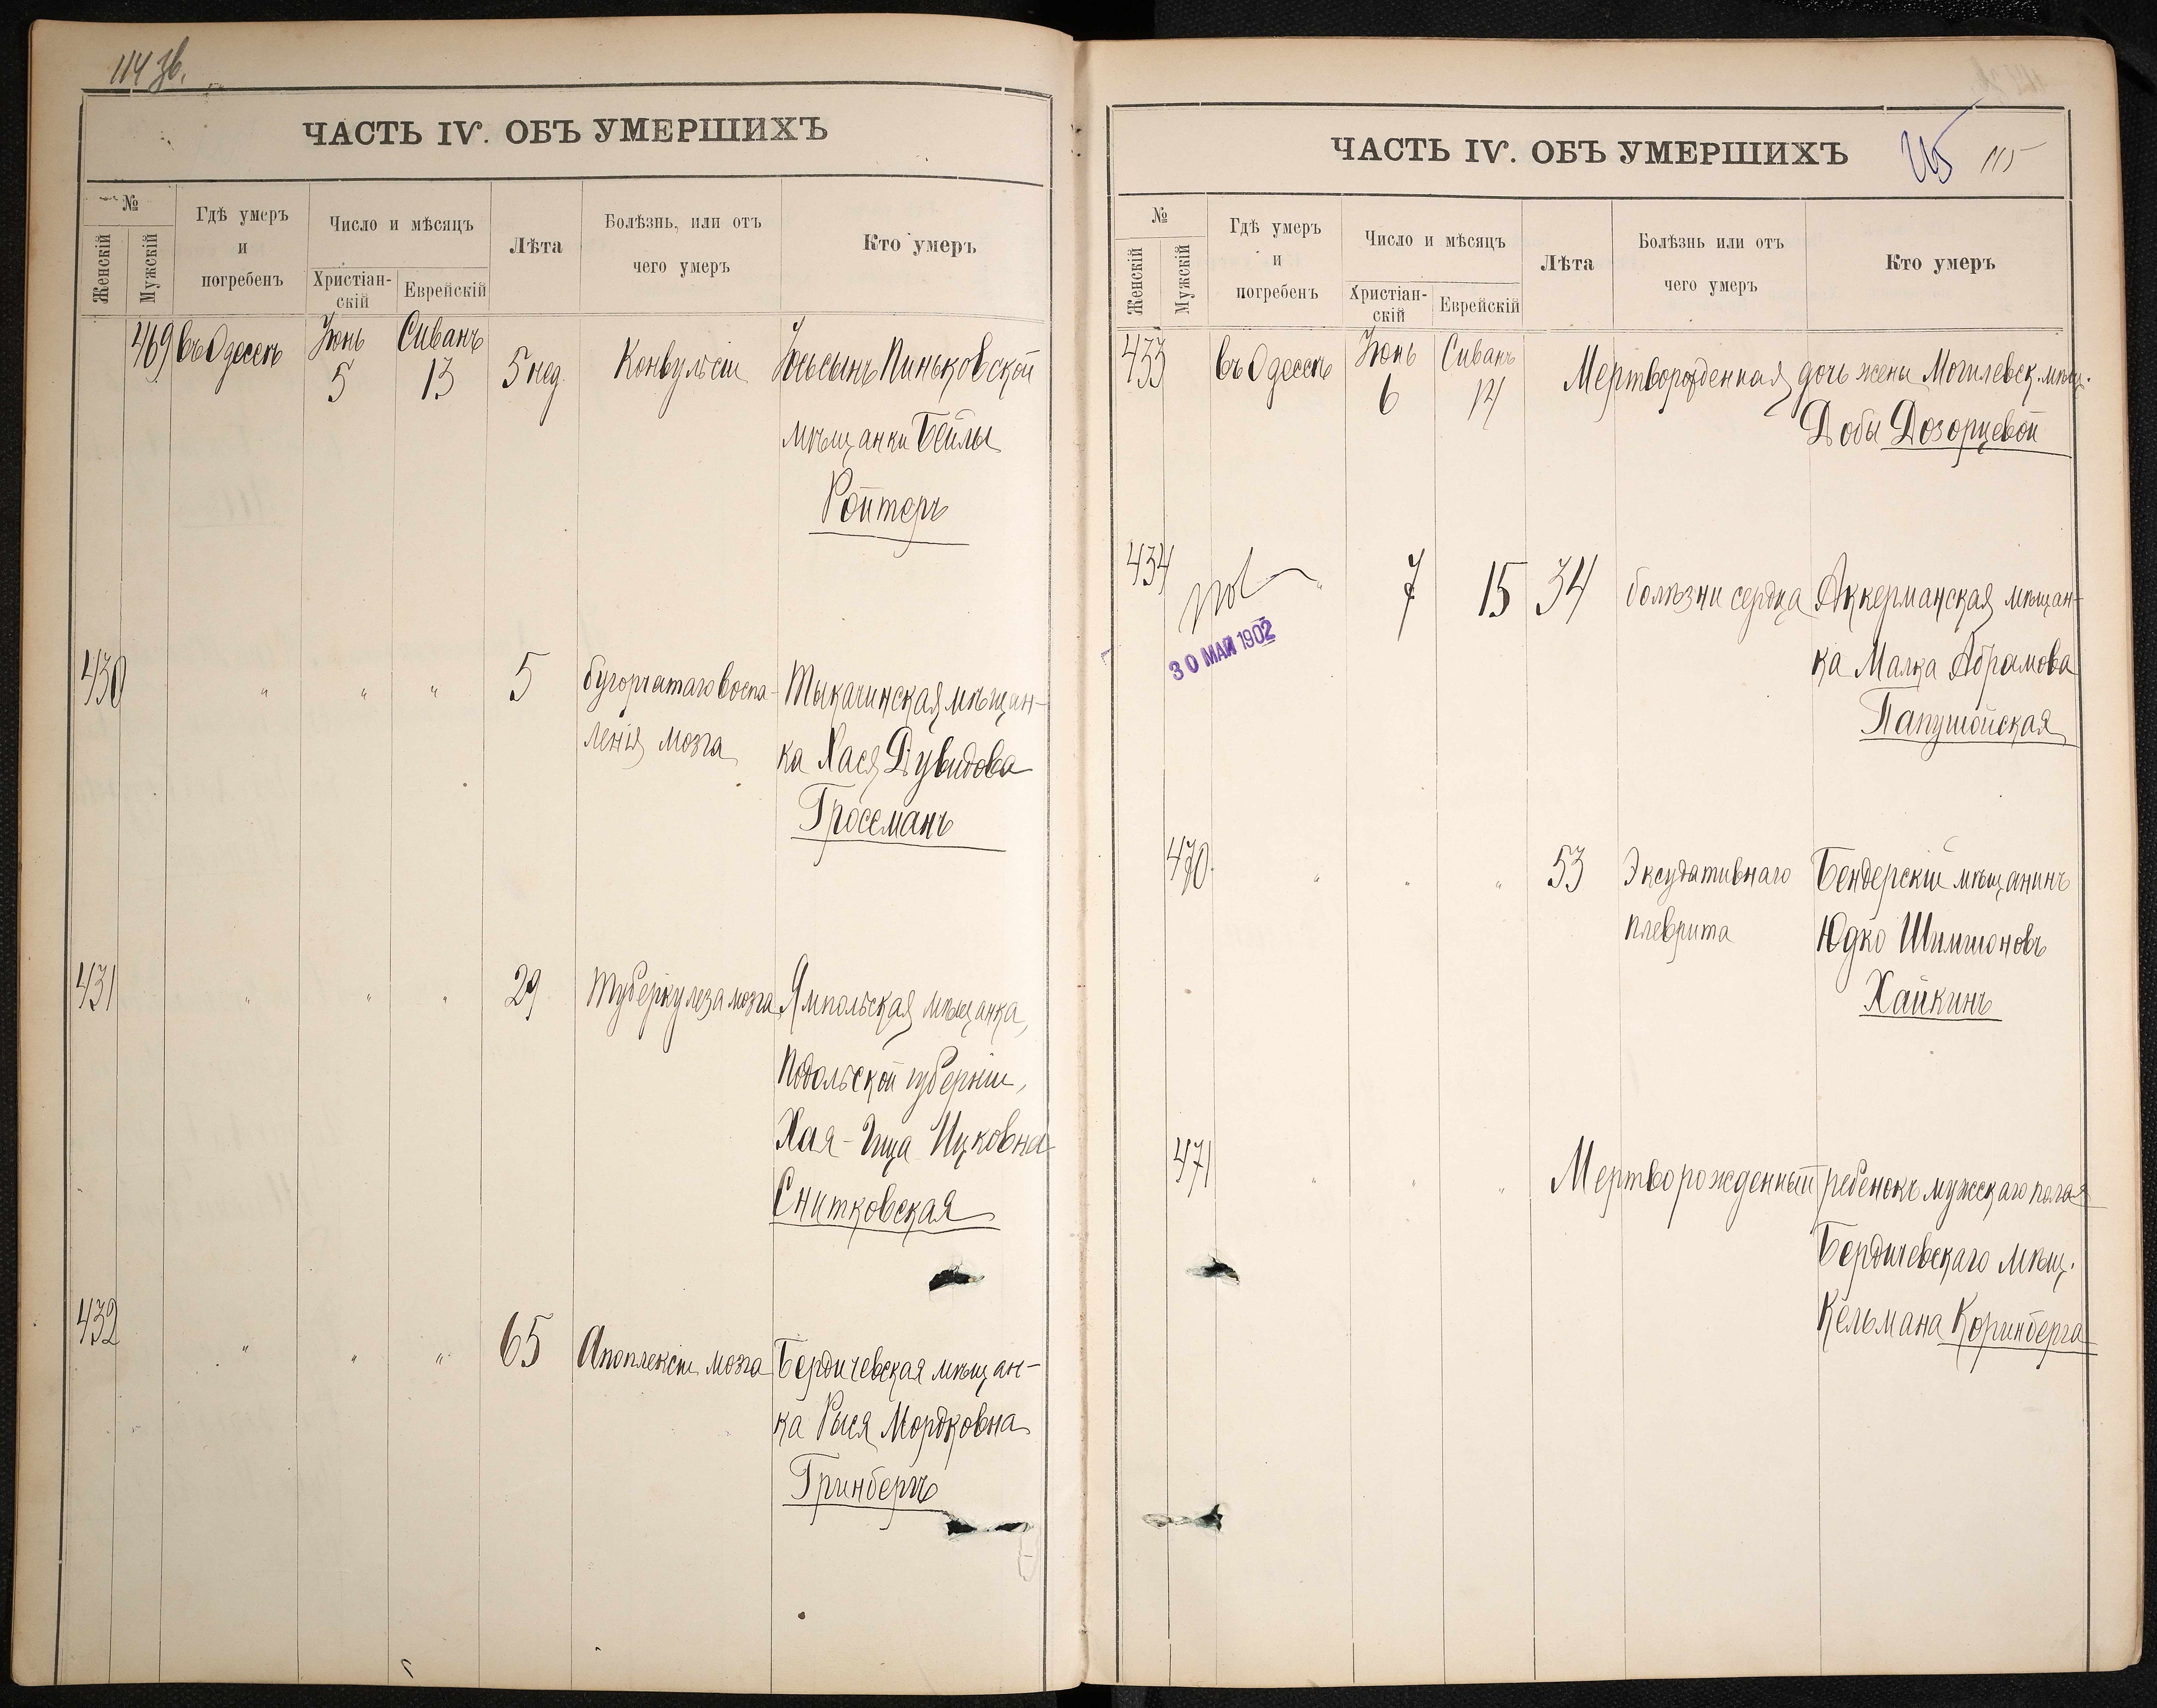 114 зв.
ЧАСТЬ IV. ОБЪ УМЕРШИХЪ
№
Женскій
Мужскій
Гдѣ умеръ
и
погребенъ
Число и мѣсяцъ
Христіан-
скій
Еврейскій
Лѣта
Болѣзнь, или отъ
чего умеръ
Кто умеръ
469 въ Одессѣ Іюнь 5 Сиванъ 13 5 нед. Конвульсіи сынъ Пиньковской
мѣщанки Бейлы
Ройтеръ
430 " " " 5 бугорчатаго воспа- Тыкачинская мѣщан-
ленія мозга ка Хася Дувидова
Гросманъ
431 " " " 29 Туберкулеза мозга Ямпольская мѣщанка,
Подольской губерніи,
Хая-Ица Ицковна
Снитковская
432 " " " 65 Апоплексіи мозга Бердичевская мѣщан-
ка Рыся Мордковна
Гринбергъ
ЧАСТЬ IV. ОБЪ УМЕРШИХЪ
115 115
№
Женскій
Мужскій
Гдѣ умеръ
и
погребенъ
Число и мѣсяцъ
Христіан-
скій
Еврейскій
Лѣта
Болѣзнь или отъ
чего умеръ
Кто умеръ
433 въ Одессѣ Іюнь 6 Сиванъ 14 Мертворожденная дочь жены Могилевск. мѣщ.
Добы Дозорцевой
434 " 7 15 34 болѣзни сердца Аккерманская мѣщан-
30 МАЙ 1902
ка Малка Абрамова
Папушойская
470. " " " 53 Эксудативнаго Бендерскій мѣщанинъ
плеврита Юдко Шимшоновъ
Хайкинъ
471 " " " Мертворожденный ребенокъ мужскаго пола
Бердичевскаго мѣщ.
Кельмана Коринберга